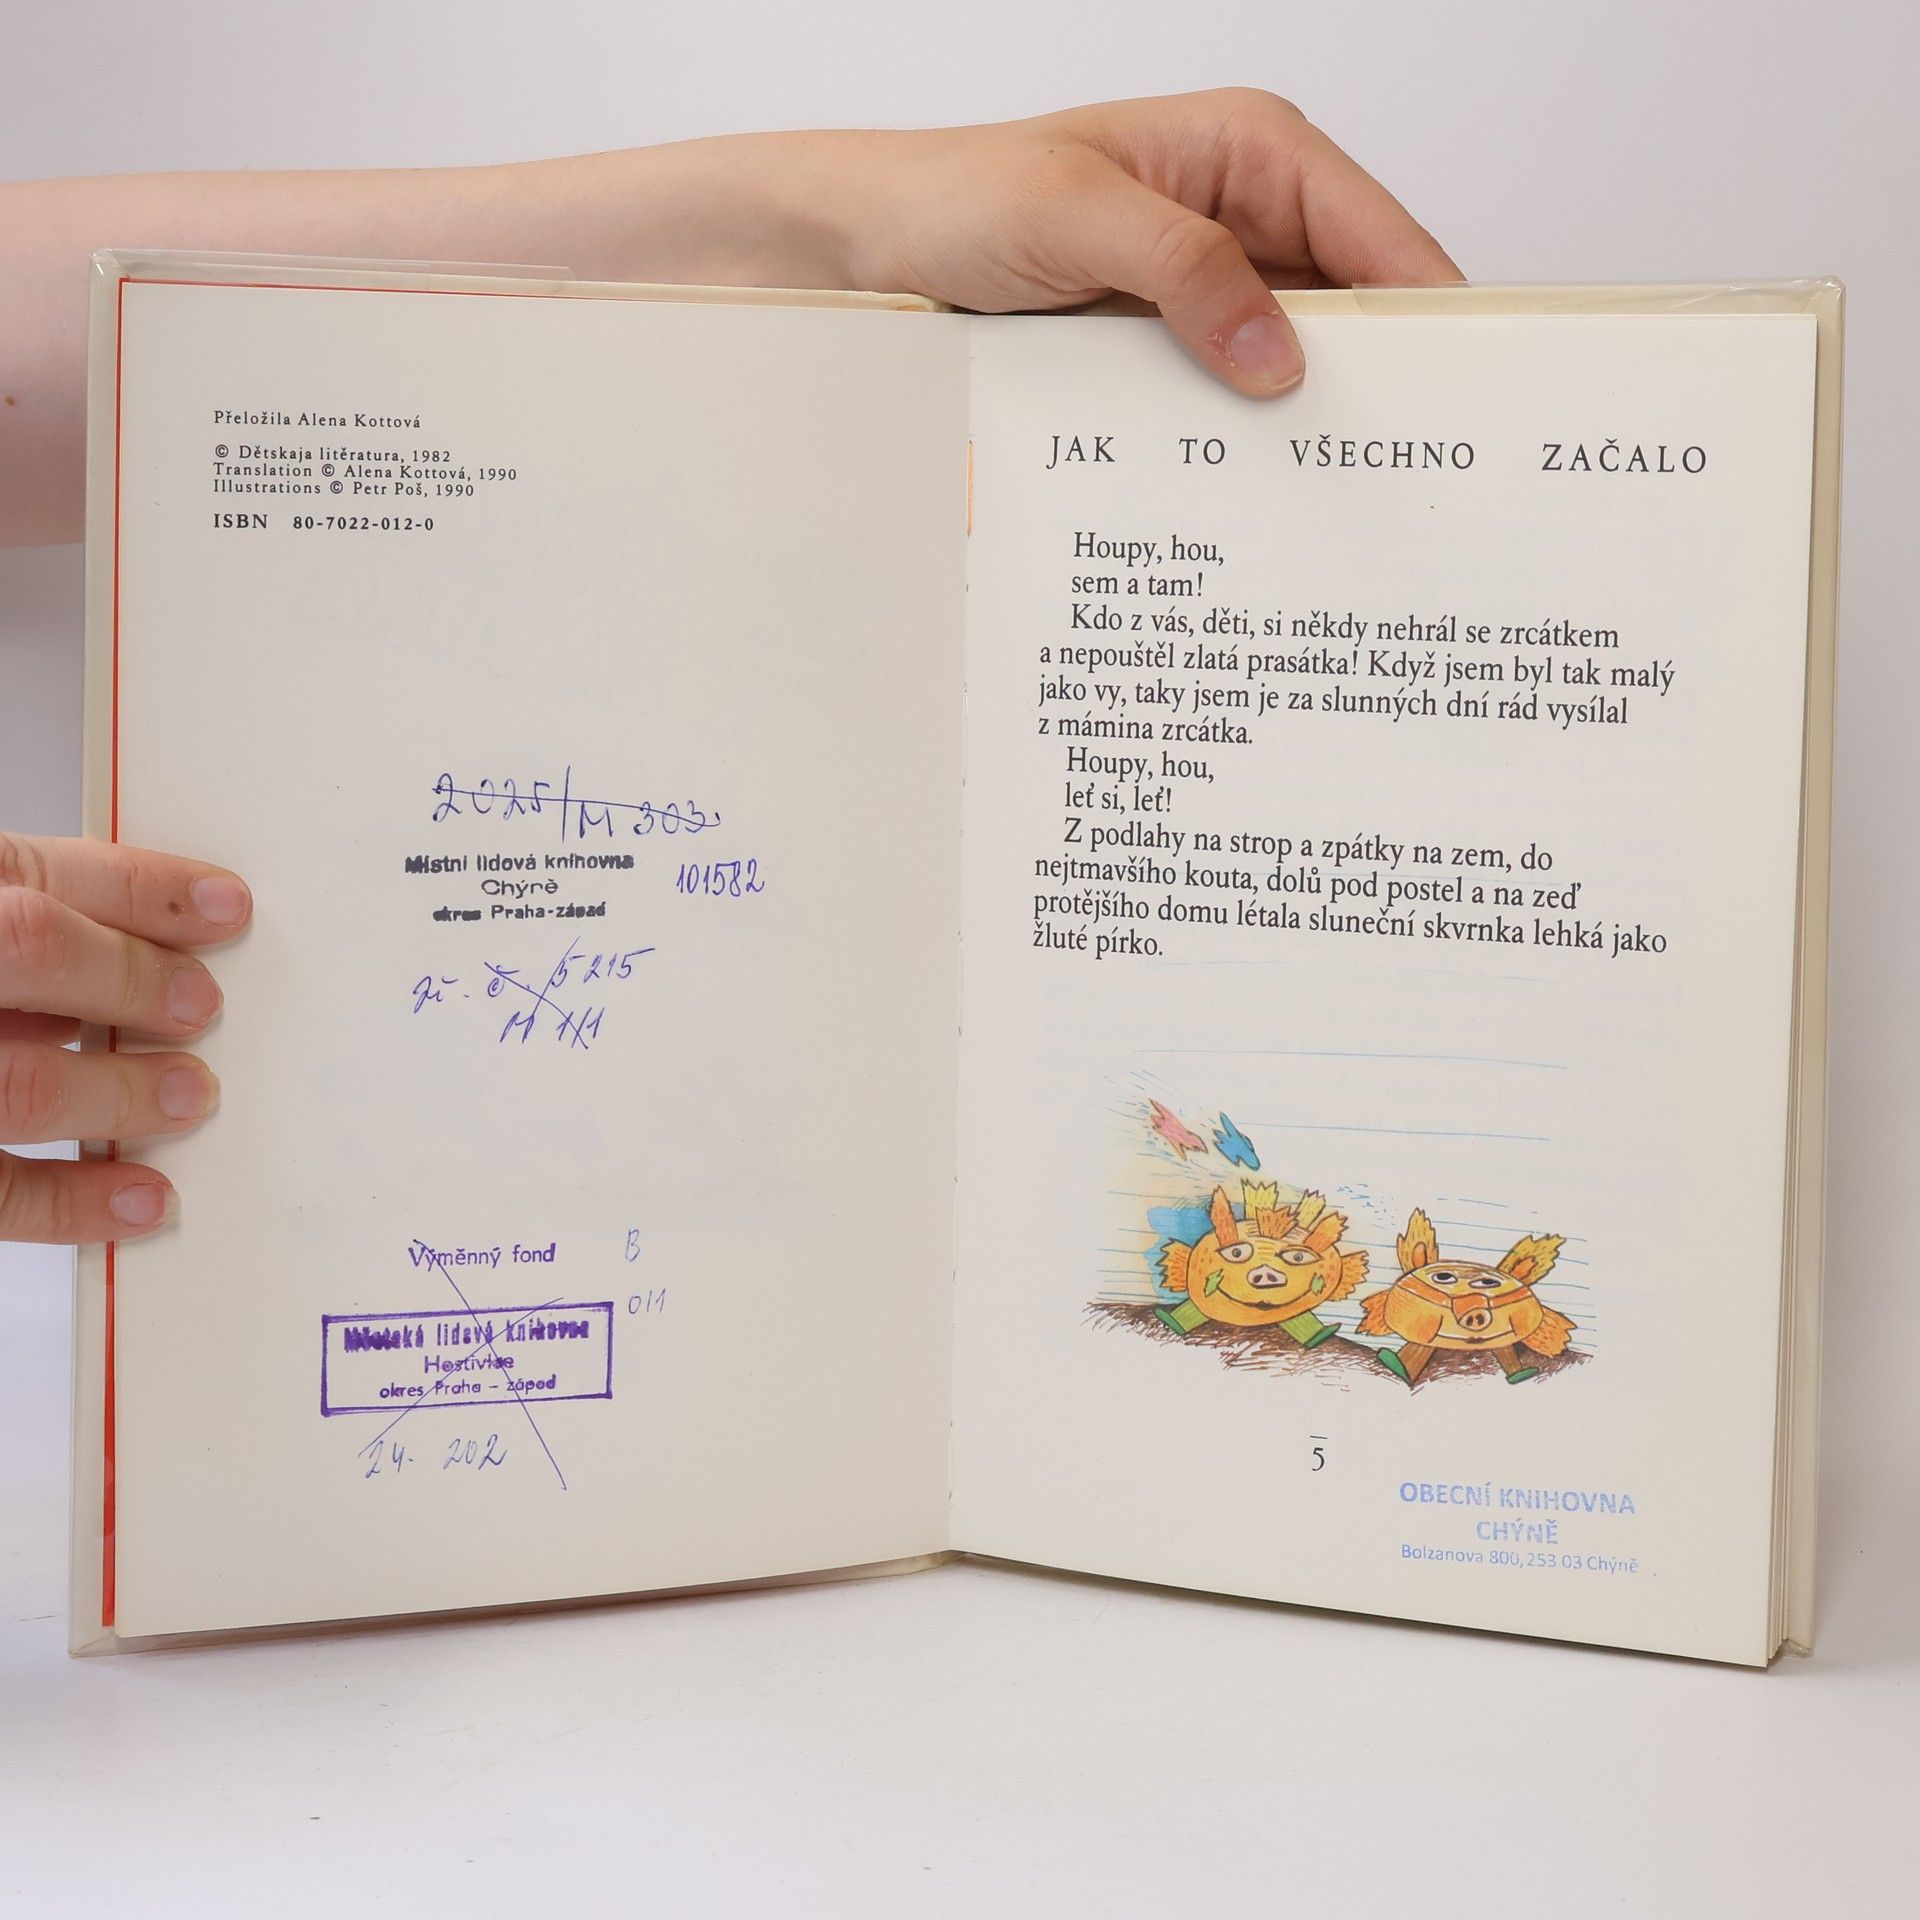 Přeložila Alena Kottová
© Dětskaja litěratura, 1982
Translation © Alena Kottová, 1990
Illustrations © Petr Poš, 1990
ISBN 80-7022-012-0
2025/M 303
Místní lidová knihovna
Chýně
okres Praha-západ
101582
č. 5215
M 1/1
Výměnný fond
B
011
Městská lidová knihovna
Hostivice
okres Praha - západ
24. 202
JAK TO VŠECHNO ZAČALO
Houpy, hou,
sem a tam!
Kdo z vás, děti, si někdy nehrál se zrcátkem
a nepouštěl zlatá prasátka! Když jsem byl tak malý
jako vy, taky jsem je za slunných dní rád vysílal
z mámina zrcátka.
Houpy, hou,
leť si, leť!
Z podlahy na strop a zpátky na zem, do
nejtmavšího kouta, dolů pod postel a na zeď
protějšího domu létala sluneční skvrnka lehká jako
žluté pírko.
5
OBECNÍ KNIHOVNA
CHÝNĚ
Bolzanova 800, 253 03 Chýně